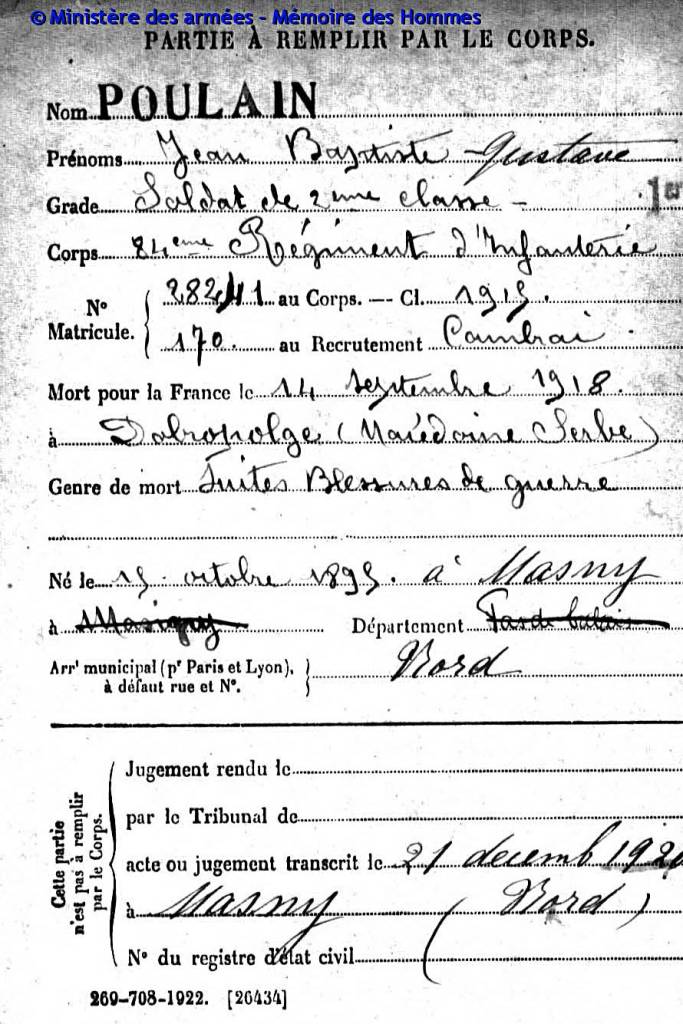 © Ministère des armées - Mémoire des Hommes
PARTIE À REMPLIR PAR LE CORPS.
Nom POULAIN
Prénoms Jean Baptiste Gustave
Grade Soldat de 2eme classe - 1er
Corps 84eme Régiment d'Infanterie
N° Matricule. 28241 au Corps. — Cl. 1915.
170 au Recrutement Cambrai
Mort pour la France le 14 septembre 1918.
à Dobropolge (Macédoine Serbe)
Genre de mort Suites Blessures de guerre
Né le 15 octobre 1895. à Masny
à Masigny Département Pas de Calais
Nord
Arrt municipal (pr Paris et Lyon),
à défaut rue et N°.
Cette partie n'est pas à remplir par le Corps.
Jugement rendu le
par le Tribunal de
acte ou jugement transcrit le 21 decemb
à Masny (Nord)
N° du registre d'état civil
269-708-1922. [26434]